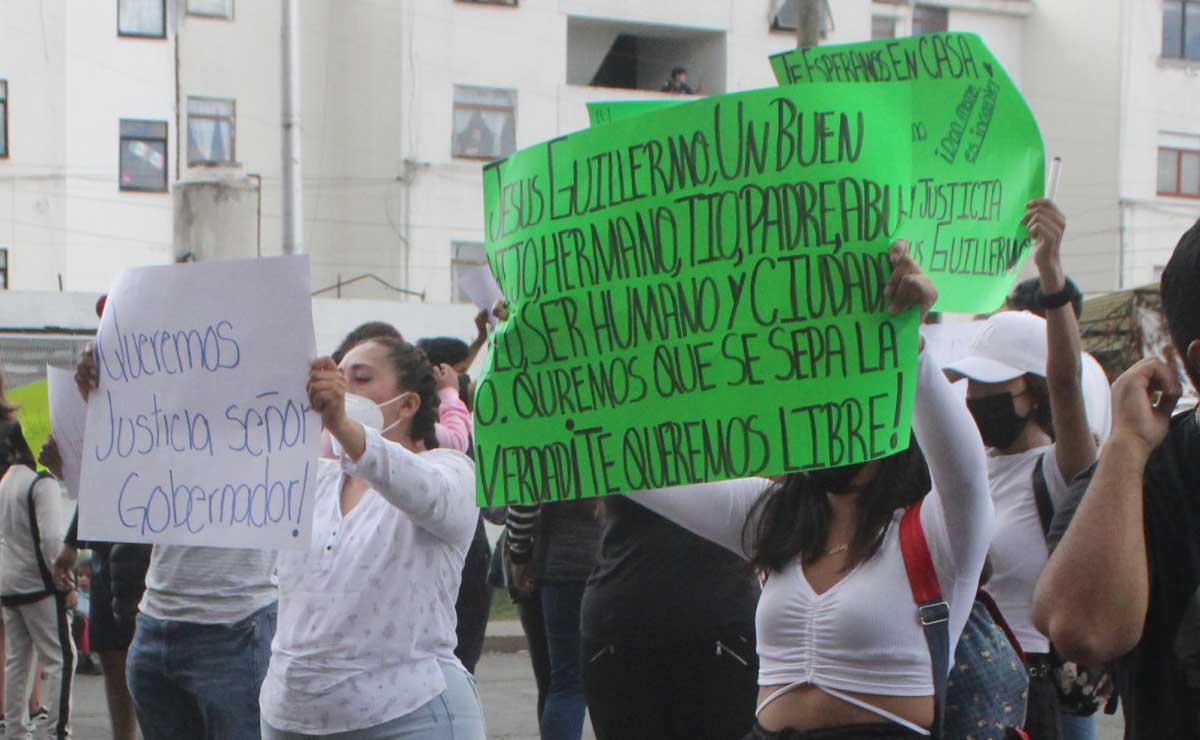 Queremos
Justicia señor
Gobernador!
JESUS GUILLERMO, UN BUEN
HIJO, HERMANO, TIO, PADRE, ABU
LO, SER HUMANO Y CIUDADA
O. QUREMOS QUE SE SEPA LA
VERDAD ¡TE QUEREMOS LIBRE!
TE ESPERANOS EN CASA
Y JUSTICIA
GUILLERMO
es inocente